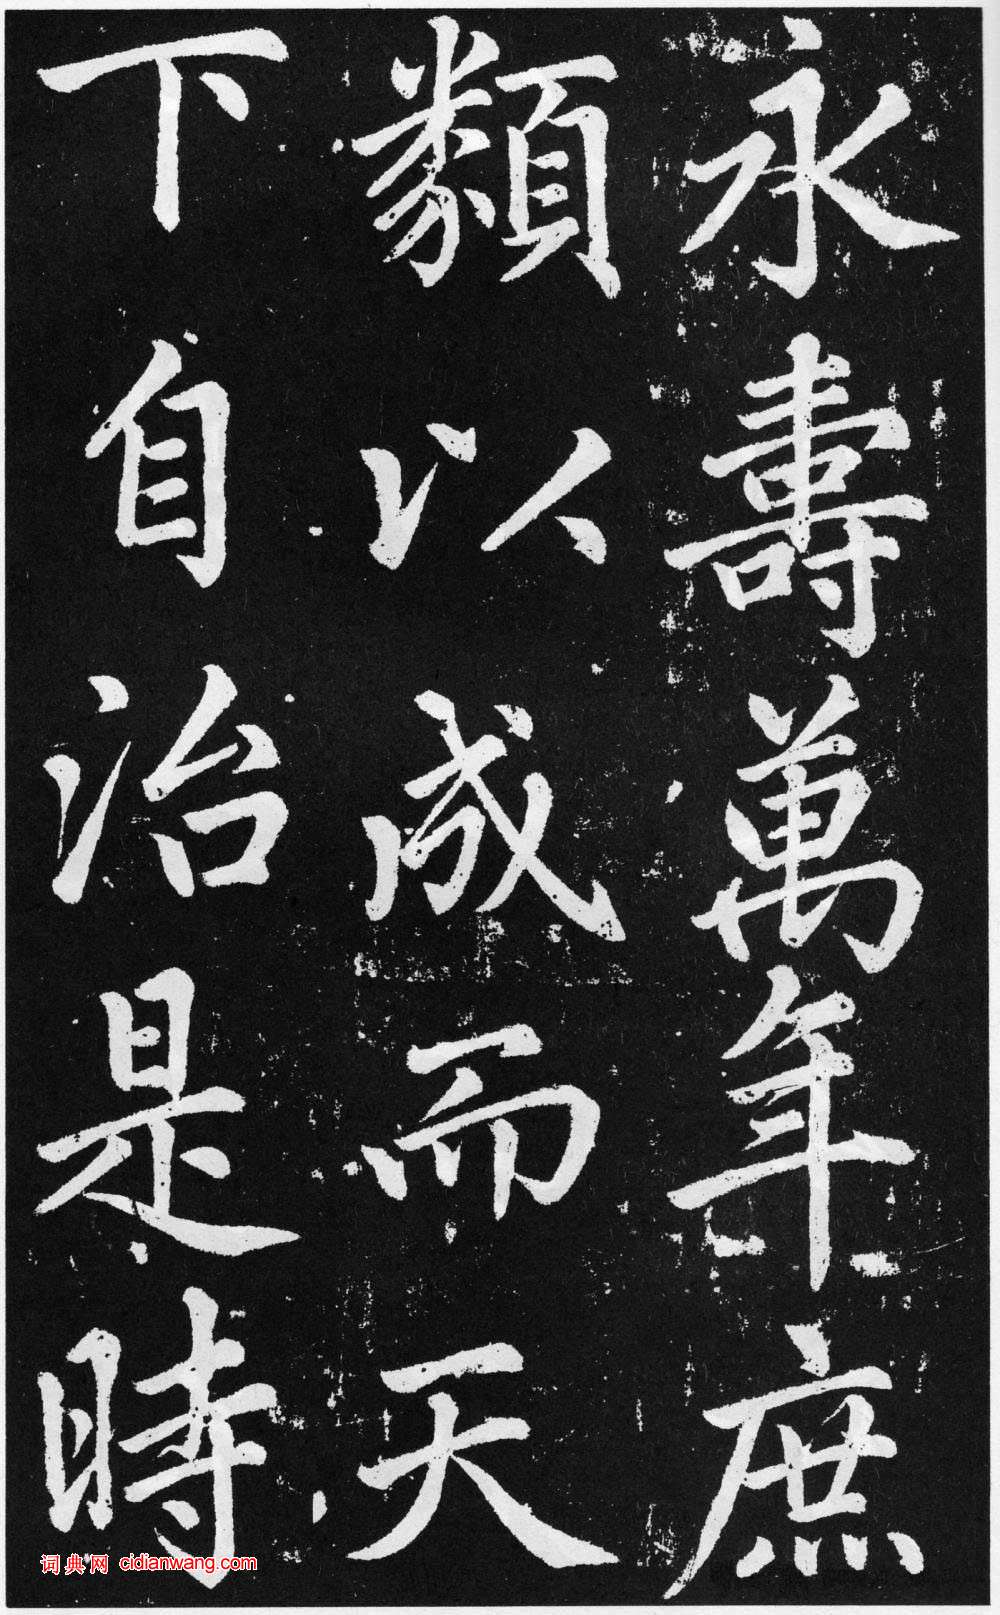 永壽萬年庶
類以成而天
下自治是時
词典网 cidianwang.com